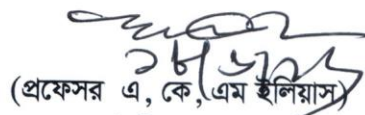 (প্রফেসর এ, কে, এম ইলিয়াস)